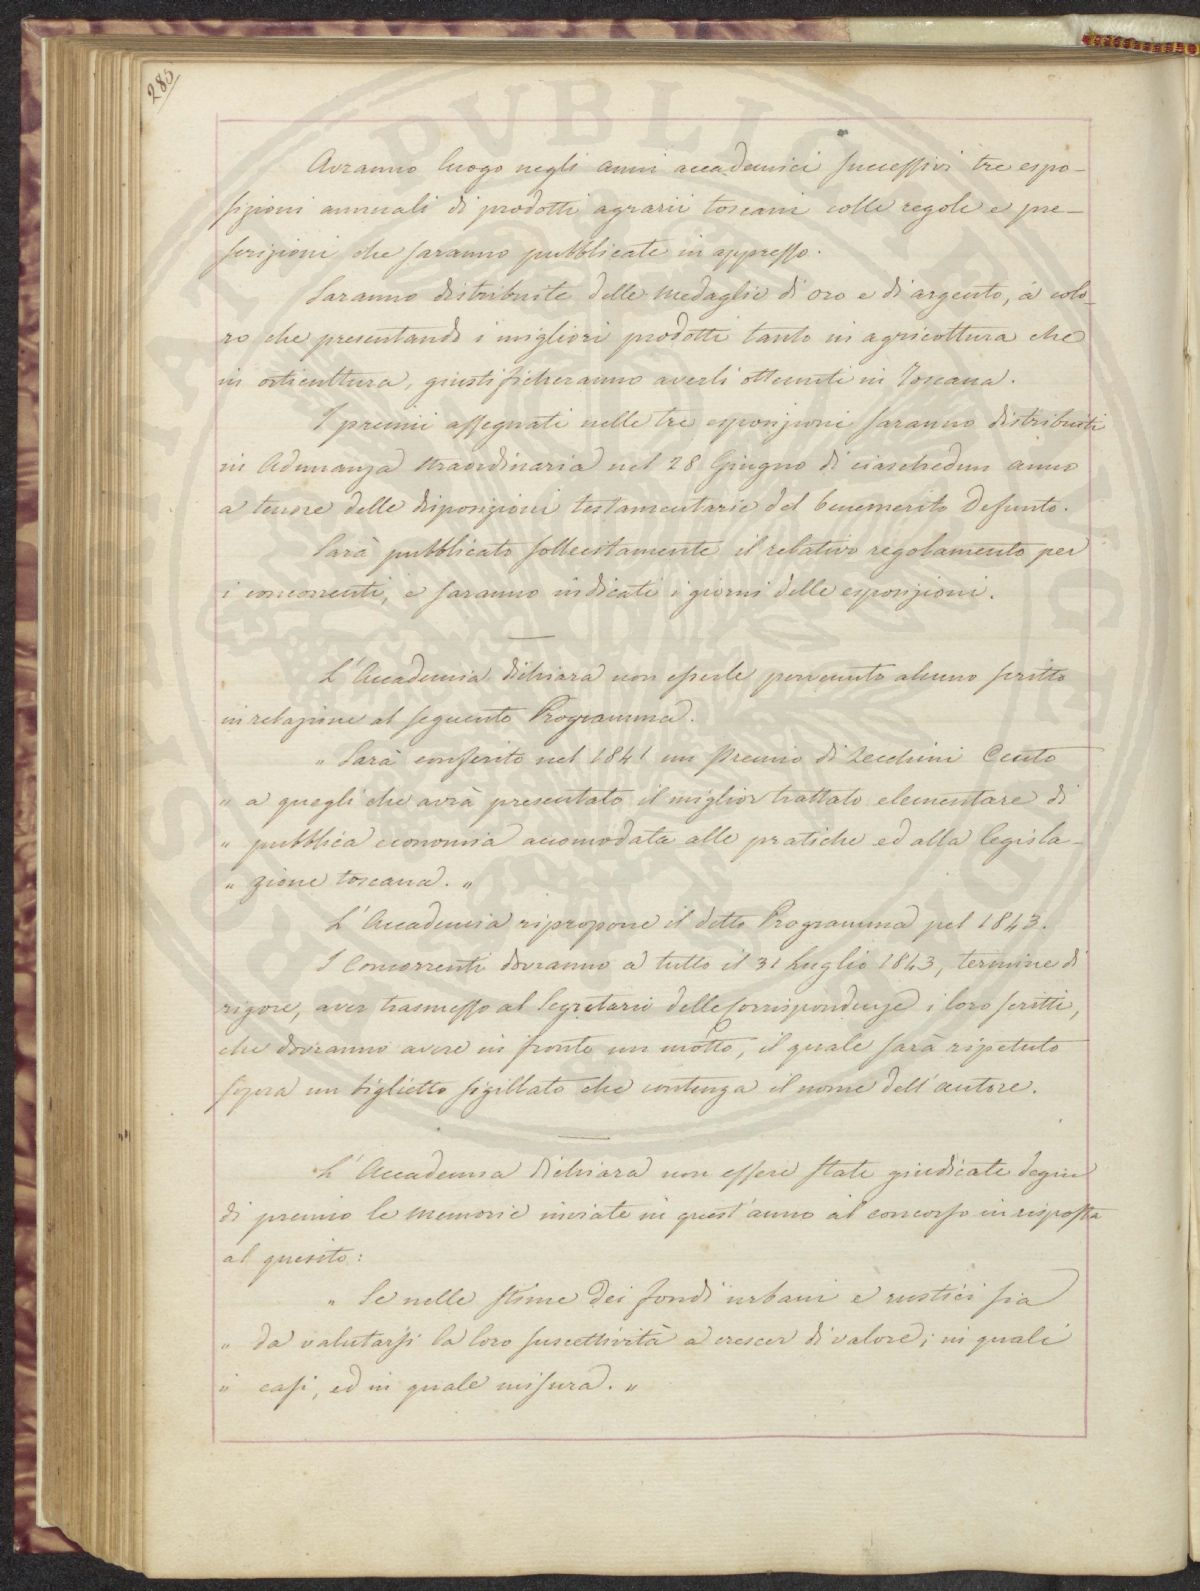 285
Avranno luogo negli anni accademici successivi tre espo-
sizioni annuali di prodotti agrarii toscani colle regole e pre-
scrizioni che saranno pubblicate in appresso.
Saranno distribuite delle medaglie di oro e di argento, a colo-
ro che presentando i migliori prodotti tanto in agricoltura che
in orticultura, giustificheranno averli ottenuti in Toscana.
I premii assegnati nelle tre esposizioni saranno distribuiti
in Adunanza straordinaria nel 28 Giugno di ciaschedun anno
a tenore delle disposizioni testamentarie del benemerito Defunto.
Sarà pubblicato sollecitamente il relativo regolamento per
i concorrenti, e saranno indicati i giorni delle esposizioni.
L'Accademia dichiara non esserle pervenuto alcuno scritto
in relazione al seguente Programma.
" Sarà conferito nel 1841 un Premio di Zecchini Cento
" a quegli che avrà presentato il miglior trattato elementare di
" pubblica economia accomodata alle pratiche ed alla legisla-
" zione toscana. "
L'Accademia ripropone il detto Programma pel 1843.
I Concorrenti dovranno a tutto il 31 Luglio 1843, termine di
rigore, aver trasmesso al Segretario delle Corrispondenze i loro scritti,
che dovranno avere in fronte un motto, il quale sarà ripetuto
sopra un biglietto sigillato che contenga il nome dell'autore.
L'Accademia dichiara non essere state giudicate degne
di premio le memorie inviate in quest'anno al concorso in risposta
al quesito:
" Se nelle stime dei fondi urbani e rustici sia
" da valutarsi la loro suscettività a crescer di valore; in quali
" casi, ed in quale misura. "